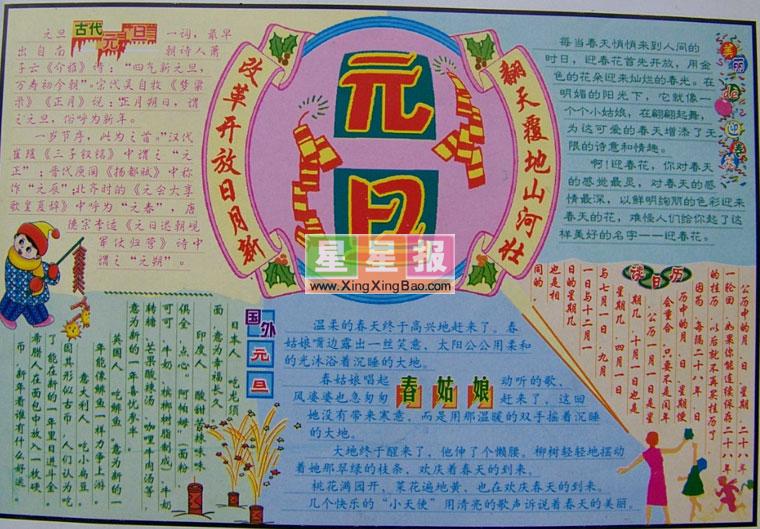 古代元旦
元旦 一词，最早
出自南 朝诗人萧
子云《介雅》诗：“四气新元旦，
万寿初今朝”。宋代吴自牧《梦粱
录》《正月》说：“正月朔日，谓
之元旦，俗呼为新年。
一岁节序，此为之首。”汉代
崔瑗《三子钗铭》中谓之“元
正”；晋代庾阐《扬都赋》中称
作“元辰”；北齐时的《元会大享
歌皇夏辞》中呼为“元春”，唐
德宗李适《元日退朝观
军仗归营》诗中
谓之“元朔”。
改革开放日月新
元旦
翻天覆地山河壮
美丽de迎春花
每当春天悄悄来到人间的
时日，迎春花首先开放，用金
色的花朵迎来灿烂的春光。在
明媚的阳光下，它就像一
个个小姑娘，在翩翩起舞，
为这可爱的春天增添了无
限的诗意和情趣。
啊！迎春花，你对春天
的感觉最灵，对春天的感
情最深，以鲜明绚丽的色彩迎来
春天的花，难怪人们给你起了这
样美好的名字——迎春花。
星星报
www.XingXingBao.com
国外元旦
日本人 吃龙须
面，意为幸福长久。
印度人 酸甜苦辣味味
俱全，点心、阿帕姆（面粉、
可可、牛奶、槟榔树脂制成）、牛奶
转糖、芒果酸辣汤、咖哩牛肉汤等，
意为新的一年喜忧参半。
英国人 吃鲱鱼。意为新的一
年能像鲱鱼一样力争上游
意大利人 吃小扁豆。
因其形似古币，人们认为吃
了能在新的一年里日进斗金
希腊人在面包中放入一枚硬
币，新年看谁有什么好运。
春姑娘
温柔的春天终于高兴地赶来了。春
姑娘嘴边露出一丝笑意，太阳公公用柔和
的光沐浴着沉睡的大地。
春姑娘唱起 动听的歌、
风婆婆也急匆匆 赶来了，这回
她没有带来寒意，而是用那温暖的双手摇着沉睡
的大地。
大地终于醒来了，他伸了个懒腰。柳树轻轻地摆动
着她那翠绿的枝条，欢庆着春天的到来。
桃花满园开，菜花遍地黄，也在欢庆春天的到来。
几个快乐的“小天使”用清亮的歌声诉说着春天的美丽。
谈日历
公历中的月、日，二十八年
一轮回，如果你能连续保存二十八年
的挂历，以后就不再买挂历了
因为，每隔二十八年，日
历中的月、日、星期便
会重合，只要不是闰年
公历一月一日是星
期几，十月一日也是
星期几
与七月一日，九月
与十二月一
日的星期几
也是相
同的。